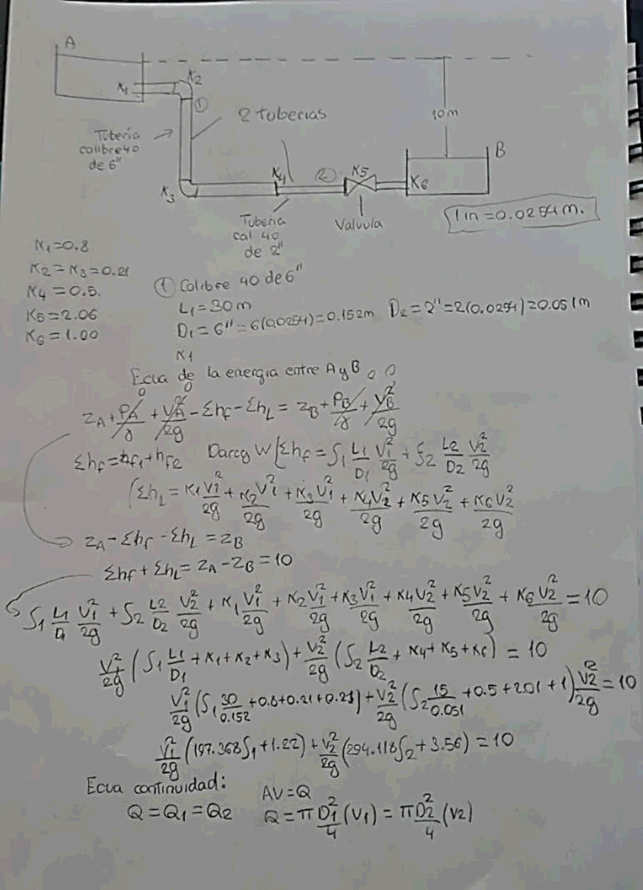 A
K1
K2
①
2 tuberias
10m
Tubería
calibre 40
de 6"
K3
K4
②
K5
K6
B
Tubería
cal 40
de 2"
Valvula
1 in = 0.0254 m.
K1=0.8
K2=K3=0.21
K4=0.5.
K5=2.06
K6=1.00
① Calibre 40 de 6"
L1=30m
D1=6"=6(0.0254)=0.152m D2=2"=2(0.0254)=0.051m
K1
Ecua de la energia entre A y B
0 0 0 0
ZA+PA/γ+VA²/2g-Σhf-ΣhL=ZB+PB/γ+VB²/2g
Σhf=hf1+hf2 Darcy W [Σhf=f1 L1/D1 V1²/2g+f2 L2/D2 V2²/2g
(ΣhL=K1V1²/2g+K2V1²/2g+K3V1²/2g+K4V2²/2g+K5V2²/2g+K6V2²/2g
ZA-Σhf-ΣhL=ZB
Σhf+ΣhL=ZA-ZB=10
f1 L1/D1 V1²/2g+f2 L2/D2 V2²/2g+K1V1²/2g+K2V1²/2g+K3V1²/2g+K4V2²/2g+K5V2²/2g+K6V2²/2g=10
V1²/2g(f1 L1/D1+K1+K2+K3)+V2²/2g(f2 L2/D2+K4+K5+K6)=10
V1²/2g(f1 30/0.152+0.8+0.21+0.21)+V2²/2g(f2 15/0.051+0.5+2.06+1)V2²/2g=10
V1²/2g(197.368f1+1.22)+V2²/2g(294.118f2+3.56)=10
Ecua continuidad: AV=Q
Q=Q1=Q2 Q=πD1²/4(V1)=πD2²/4(V2)